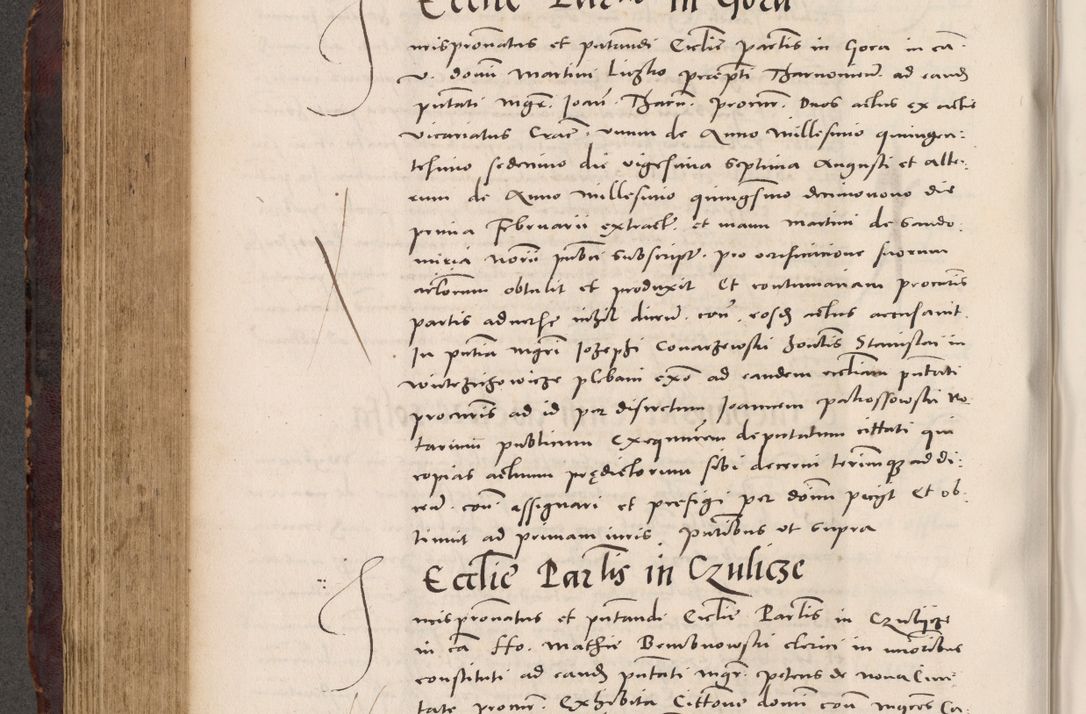 Ecclie Parlis in Gora
iurispronatus et putandi Ecclie Partis in Gora in ca
v. domi Martini Luzko precepti Tharnomien. ad eand
putati mgr. Joan. Tharn. procur. Duos actus ex actis
vicariatus Crac. unum de Anno Millesimo quingen:
tesimo sedecimo die vigesima septima Augusti et alte:
rum de Anno Millesimo quingesimo decimonono die
prima Februarii extract. et manu Martini de Sando:
miria Notarii publici subscript. pro verificatione suorum
actorum obtulit et produxit Et contumaciam procuris
partis adverse nihil dicen. con. eosd actus accusavit
In putia mgri Josephi Stanislai in
plebani ex ad eandem eccliam putati
procuris ad id per discretum Joannem No:
tarium publicum Exequutorem deputatum cittati qui
copias actuum prędictorum sibi decerni terminumq ad di:
cen. con. assignari et prefigi per domi petiyt Et ob:
tinuit ad primam iuris. Putibus ut supra
Ecclie Parlis in Czulicze
iurispronatus et putandi Ecclie Partis in Czulijcze
in ca Mathie Bembnowski clerici in minoribus
constituti ad eand putati mgr. petrus de Nova Civi
tate procur. Exhibita Cittone domi con mgros Ca: